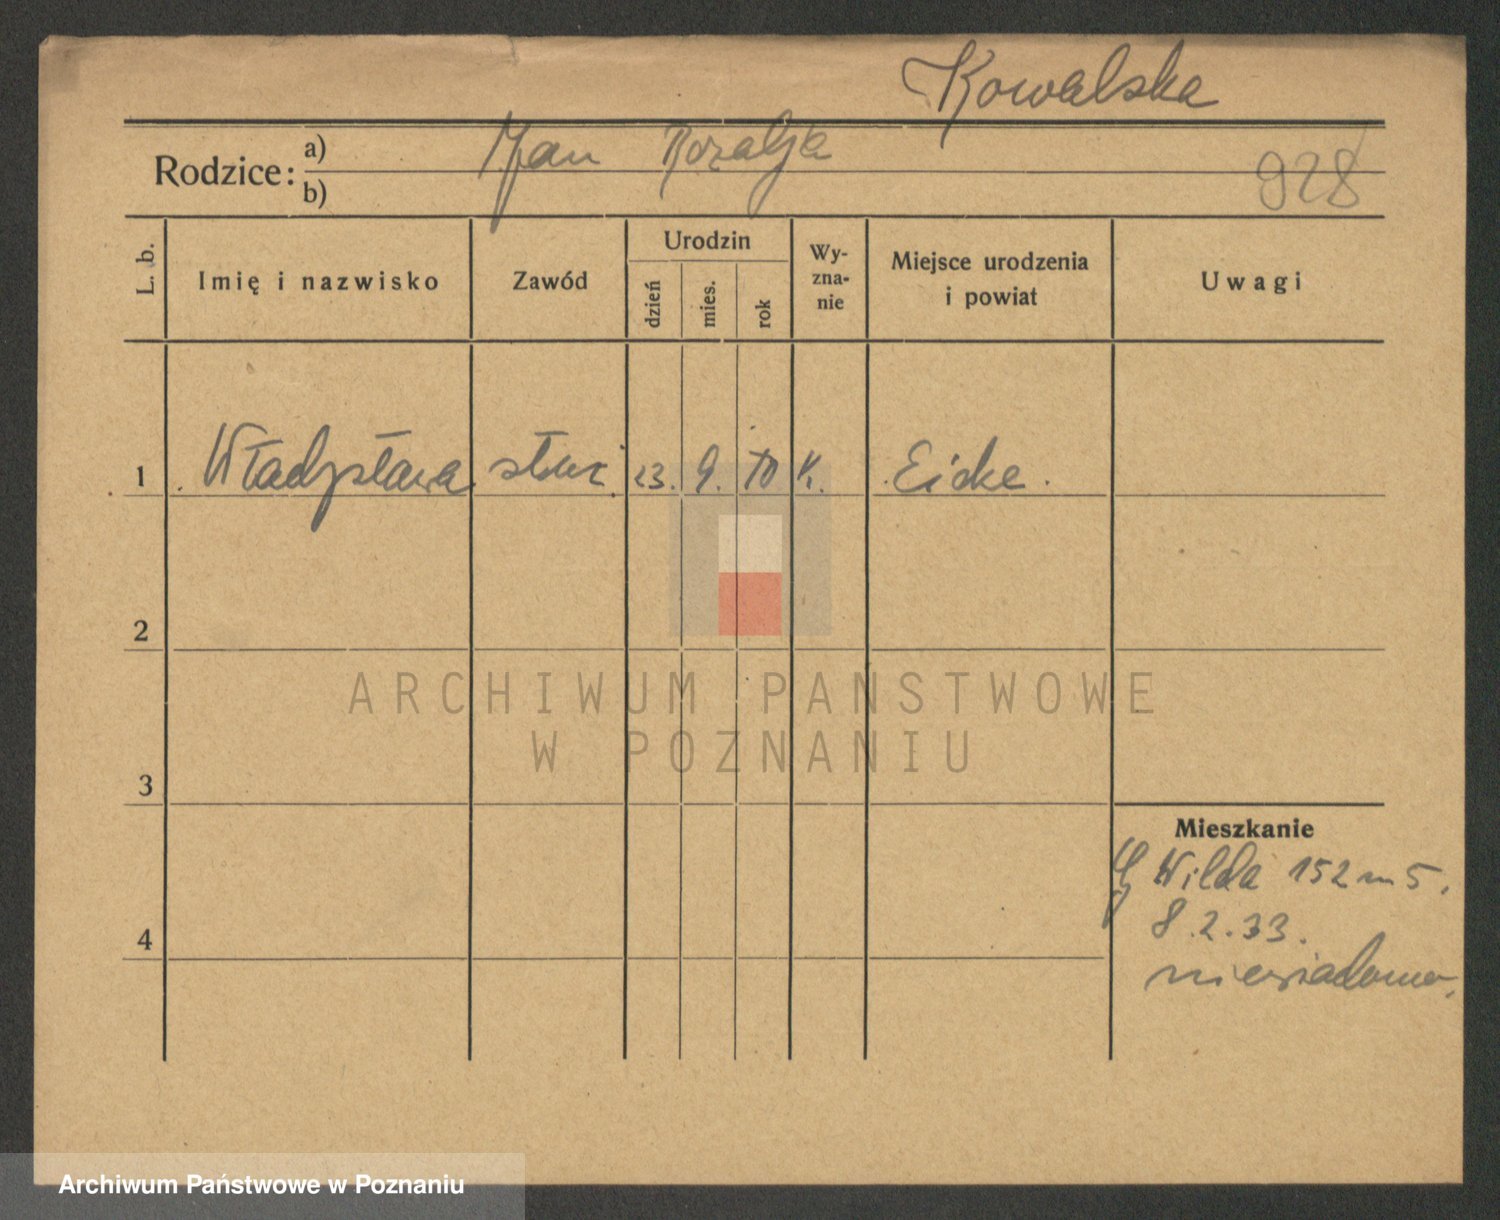 Kowalska
Rodzice: a) Jan Rozalja
b)
928
L. b.
Imię i nazwisko
Zawód
Urodzin
dzień
mies.
rok
Wy-
zna-
nie
Miejsce urodzenia
i powiat
Uwagi
1 Władysława służ. 23. 9. 10 K. Eicke.
2
3
4
Mieszkanie
G Wilda 152 m 5.
8.2.33.
niewiadomo.
ARCHIWUM PAŃSTWOWE
W POZNANIU
Archiwum Państwowe w Poznaniu